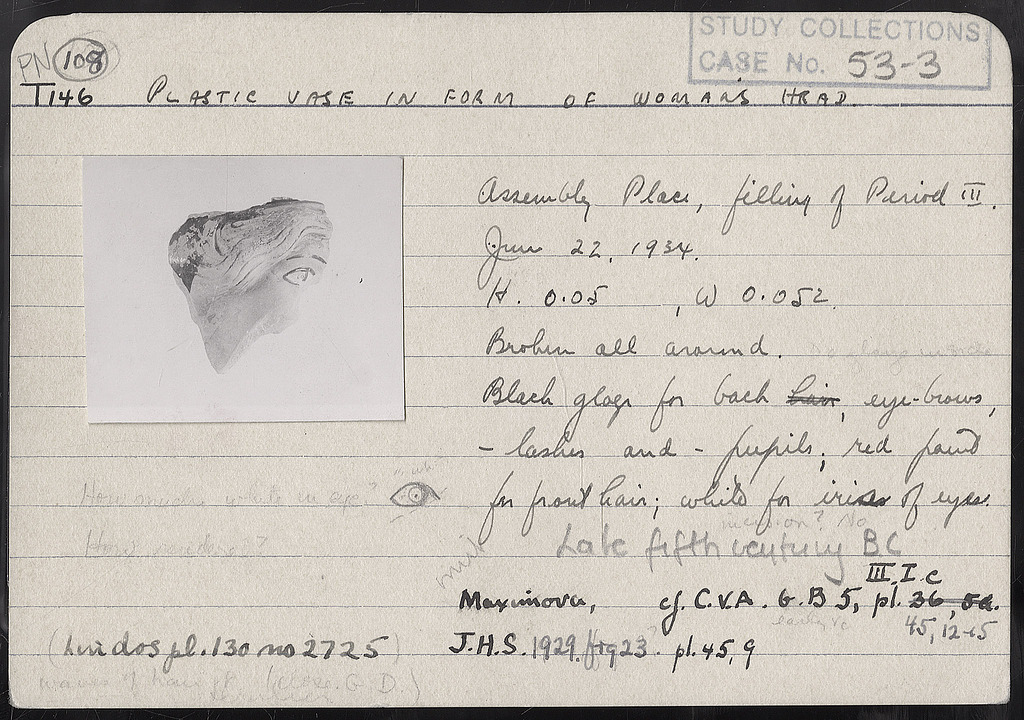 STUDY COLLECTIONS
CASE No. 53-3
PN 108
T146 PLASTIC VASE IN FORM OF WOMANS HEAD
Assembly Place, filling of Period III.
June 22, 1934.
H. 0.05 , W 0.052
Broken all around.
Black glaze for back hair, eye-brows,
- lashes and - pupils; red paint
How much white in eye?
for front hair; white for iris of eyes.
incision? No
Late fifth century BC
III. I. c
Maximova, cf. C.V.A. G.B 5, pl. 36, 5a.
45, 12-15
(Lindos pl. 130 no 2725)
J.H.S. 1929. fig 23. pl. 45, 9
waves of hair